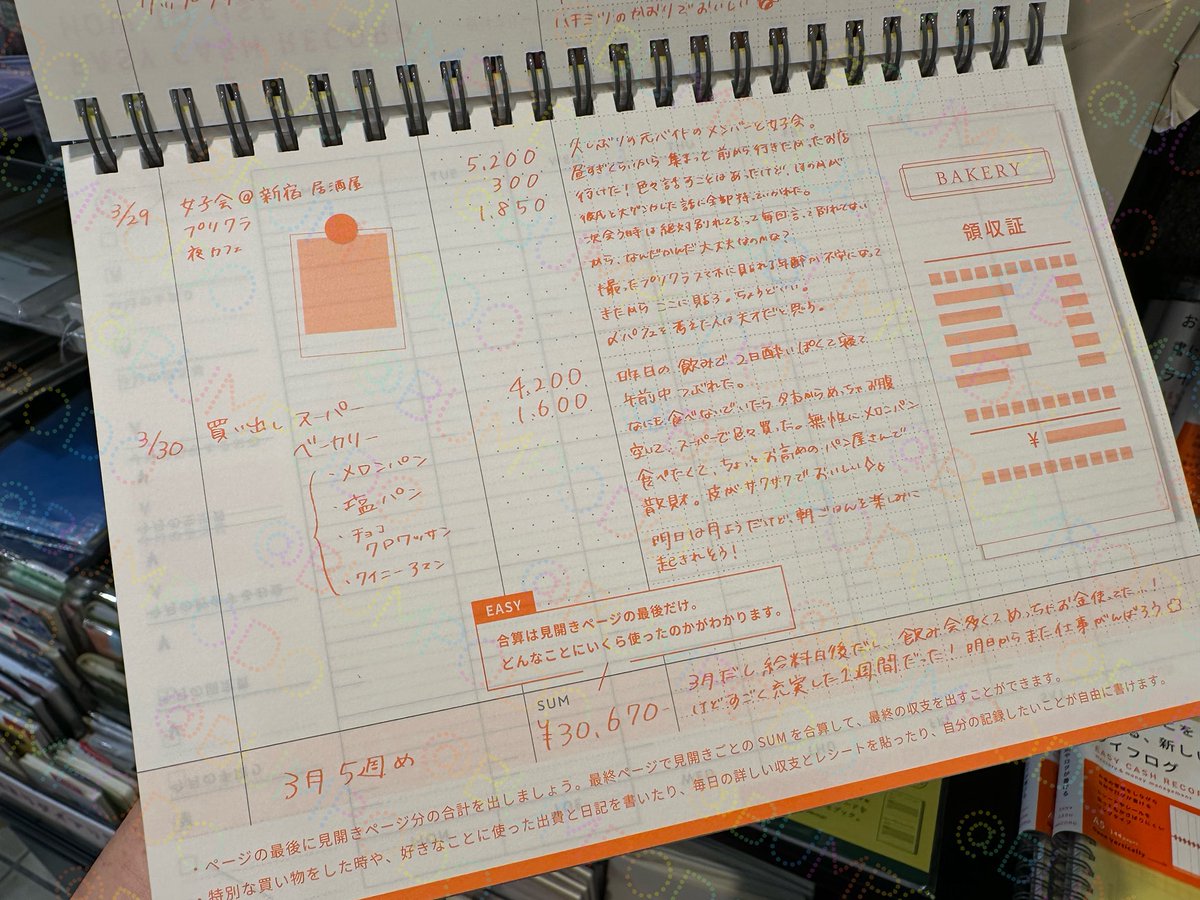 ハチミツのかおりでおいしい
3/29
女子会@新宿 居酒屋
プリクラ
夜カフェ
5,200
300
1,850
久しぶりの元バイトのメンバーと女子会。
昼すぎくらいから集まって前から行きたかったお店
行けた!色々話すことはあったけど、ほのかが
彼氏と大ゲンカした話に全部持っていかれた。
次会う時は絶対別れてるって毎回言って別れてない
から、なんだかんだ大丈夫なのかな?
撮ったプリクラスマホに貼られる年齢が不安になって
きたからここに貼る。ちょうどいい。
夜パフェを考えた人は天才だと思う。
3/30
買い出し スーパー
ベーカリー
・メロンパン
・塩パン
・チョコ
クロワッサン
・ウインナーマン
4,200
1,600
昨日の飲みで、2日酔いぽくて寝て
午前中つぶれた。
なにも食べないでいたら夕方からめっちゃお腹
空いて、スーパーで色々買った。無性にメロンパン
食べたくて、ちょっとお高めのパン屋さんで
散財。皮がサクサクでおいしい
明日は月ようだけど、朝ごはんを楽しみに
起きれそう!
BAKERY
領収証
¥
EASY
合算は見開きページの最後だけ。
どんなことにいくら使ったのかがわかります。
3月5週め
SUM
¥30,670-
3月だし給料日後だし、飲み会多くてめっちゃお金使ってた…!
けどすごく充実した1週間だった!明日からまた仕事がんばろう
・ページの最後に見開きページ分の合計を出しましょう。最終ページで見開きごとのSUMを合算して、最終の収支を出すことができます。
・特別な買い物をした時や、好きなことに使った出費と日記を書いたり、毎日の詳しい収支とレシートを貼ったり、自分の記録したいことが自由に書けます。
る、新しい
イフログ
EASY CASH RECO